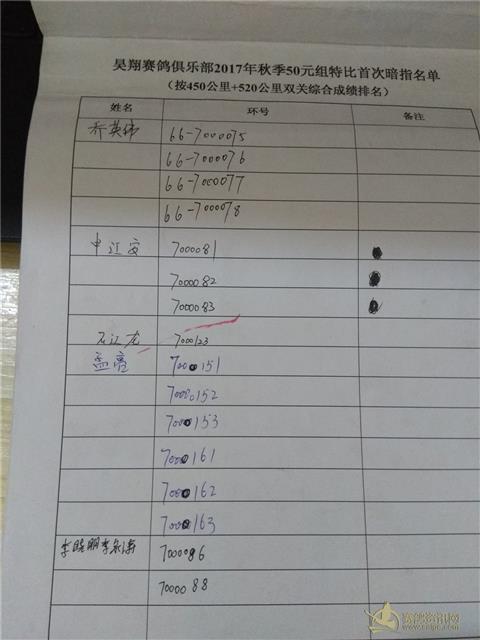 昊翔赛鸽俱乐部2017年秋季50元组特比首次暗指名单
（按450公里+520公里双关综合成绩排名）
姓名 环号 备注
乔英伟 66-7000075
66-7000076
66-7000077
66-7000078
申江安 7000081
7000082
7000083
石江龙 7000123
孟亮 7000151
7000152
7000153
7000161
7000162
7000163
李晓明李永涛 7000086
7000088
赛鸽资讯网